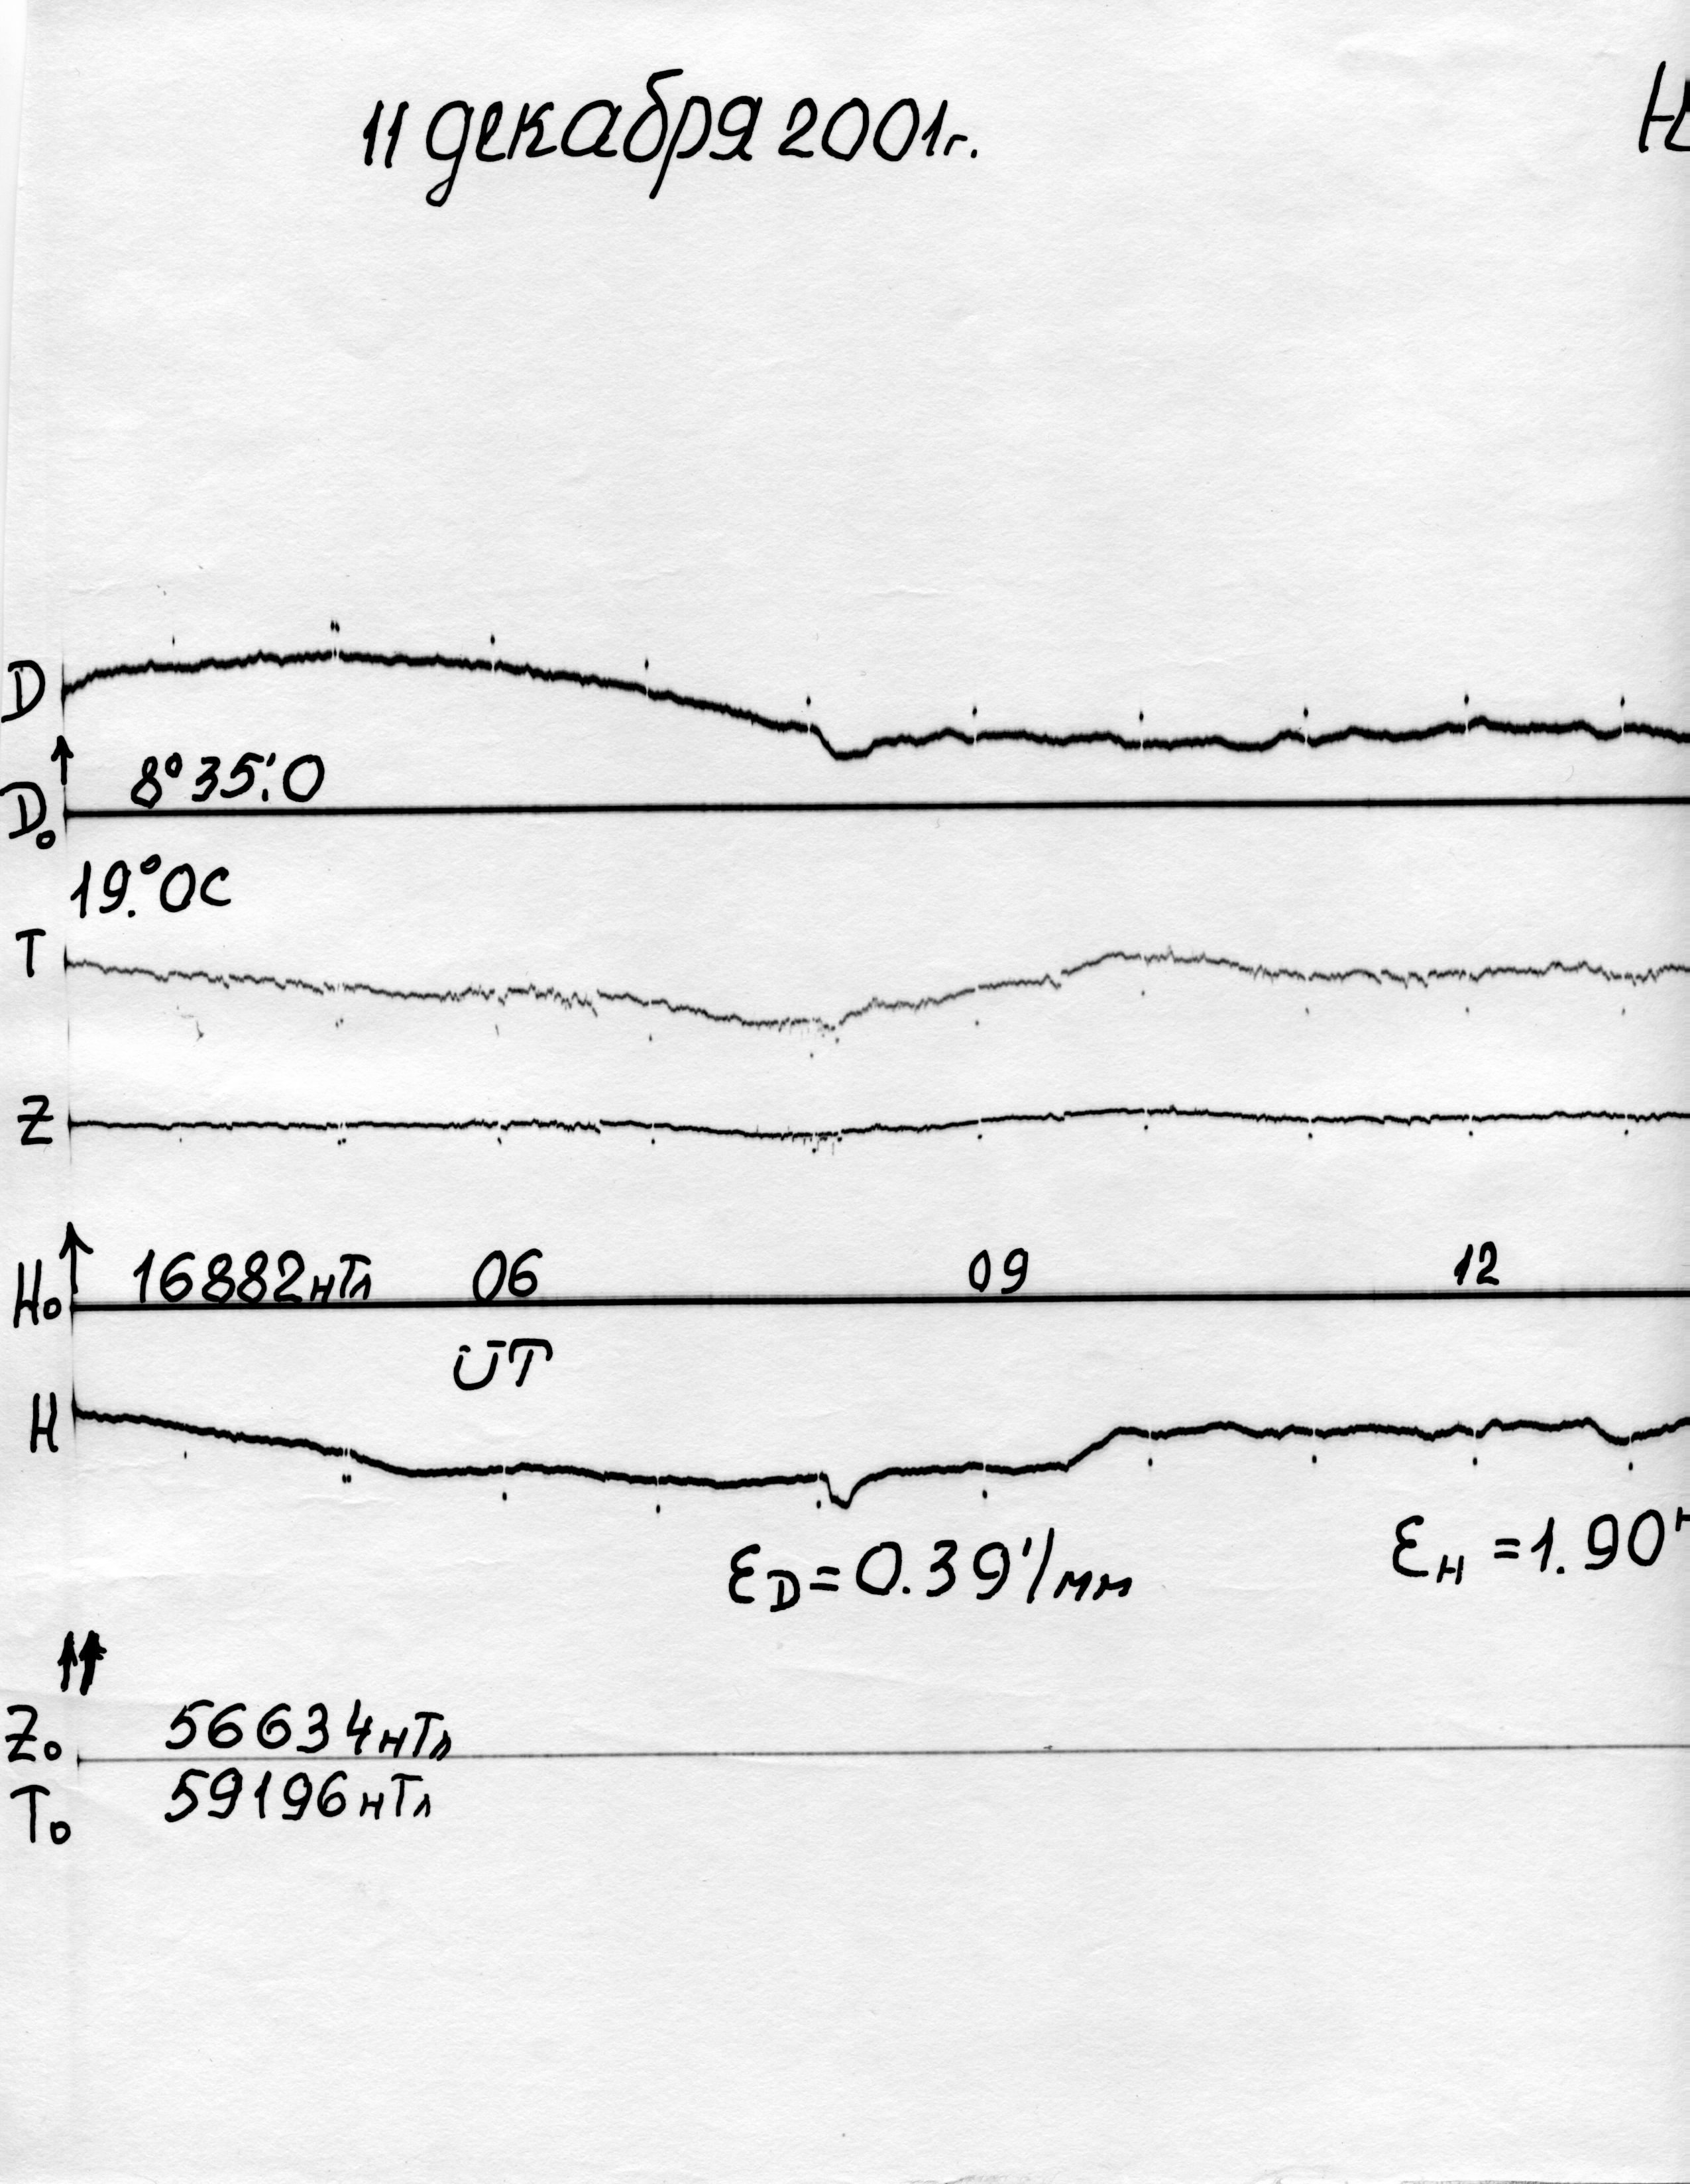 11 декабря 2001г.
D
8°35'.0
D₀
19.°0С
T
Z
H₀ 16882нТл 06 09 12
UT
H
ε_D=0.39'/мм ε_H=1.90
Z₀ 56634нТл
T₀ 59196нТл